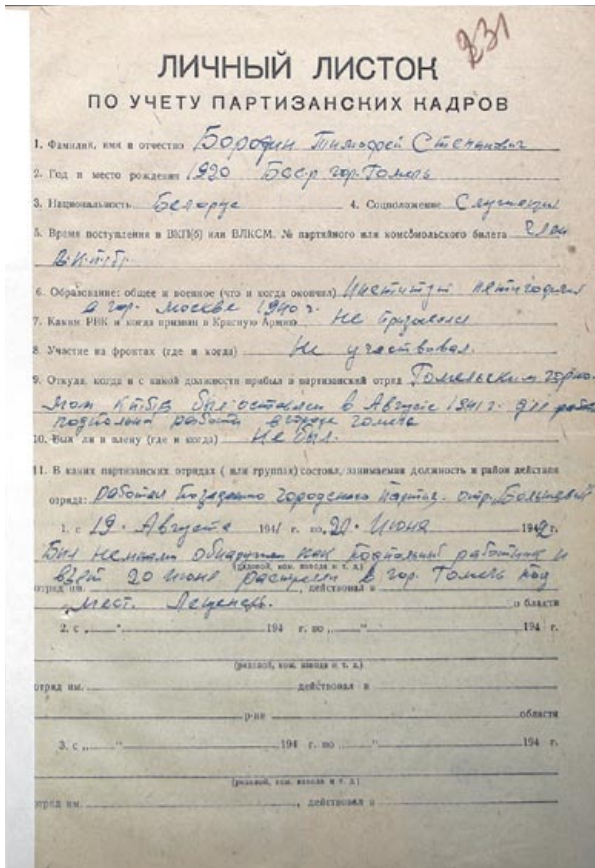 231
ЛИЧНЫЙ ЛИСТОК
ПО УЧЕТУ ПАРТИЗАНСКИХ КАДРОВ
1. Фамилия, имя и отчество Бородин Тимофей Степанович
2. Год и место рождения 1920 Бсср гор. Гомель
3. Национальность Беларус 4. Соцположение Служащий
5. Время поступления в ВКП(б) или ВЛКСМ. № партийного или комсомольского билета Член
В.К.П.(б)
6. Образование: общее и военное (что и когда окончил) Институт
в гор. Москве 1940 г.
7. Каким РВК и когда призван в Красную Армию Не призывался
8. Участие на фронтах (где и когда) Не участвовал.
9. Откуда, когда и с какой должности прибыл в партизанский отряд Гомельским
КП(б)Б был оставлен в Августе 1941 г. для
подпольной работы в городе Гомеле
10. Был ли в плену (где и когда) Не был.
11. В каких партизанских отрядах ( или группах) состоял, занимаемая должность и район действия
отряда: Работал городского отр. Большевик
1. с 19. Августа 1941 г. по 20. Июня 1942 г.
Был немцами обнаружен как подпольный работник и
(рядовой, ком. взвода и т. д.)
взят 20 июня расстрелян в гор. Гомель под
отряд им. , действовал в
мест. Лещенец. области
2. с „ “ 194 г. по „ “ 194 г.
(рядовой, ком. взвода и т. д.)
отряд им. действовал в
р-не области
3. с „ “ 194 г. по „ “ 194 г.
(рядовой, ком. взвода и т. д.)
отряд им. , действовал в